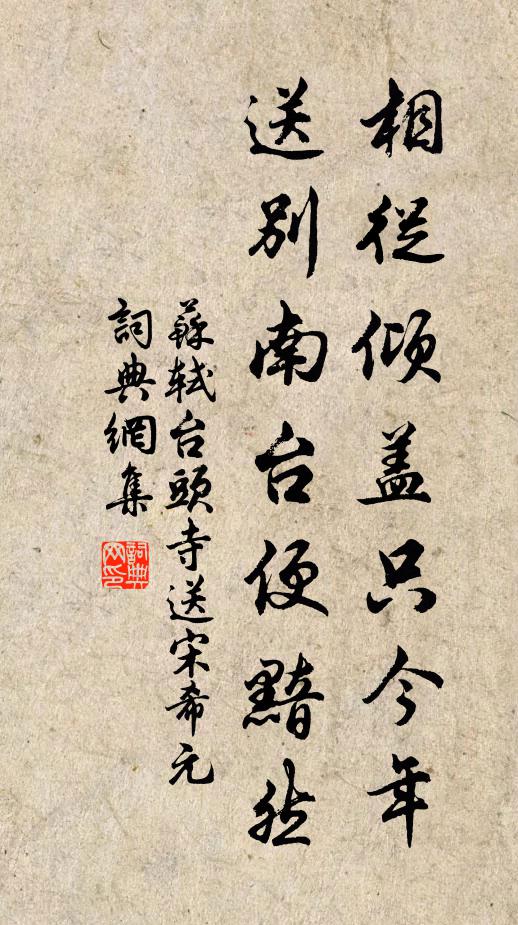 相從倾盖只今年
送别南台便黯然
蘇軾台頭寺送宋希元
詞典網集
詞典网印